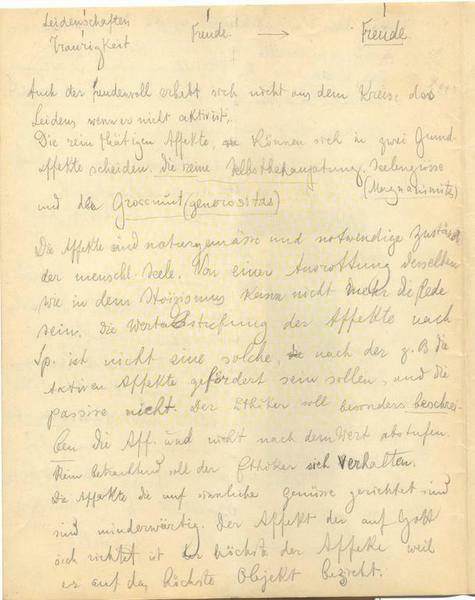 Leidenschaften
Traurigkeit Freude → Freude
Auch der freudenvoll erhebt sich nicht aus dem Kreise des
Leidens wenn er nicht aktiv ist.
Die rein thätigen Affekte, können sich in zwei Grund
affekte scheiden. die reine Selbstbehauptung, Seelengrösse
(Magnanimitas)
und der Grossmut (generositas)
Die Affekte sind naturgemässe und notwendige Zustände
der menschl. Seele. Von einer Ausrottung derselben
wie in dem Stoizismus kann nicht mehr die Rede
sein. Die Wertabstufung der Affekte nach
Sp. ist nicht eine solche, nach der z. B die
aktiven Affekte gefördert sein sollen, und die
passive nicht. Der Ethiker soll besonders beschrei-
ben die Aff. und nicht nach dem Wert abstufen.
Rein betrachtend soll der Ethiker sich verhalten.
Die Affekte die auf sinnliche genüsse gerichtet sind
sind minderwärtig. Der Affekt der auf Gott
sich richtet ist der höchste der Affekte weil
er auf das höchste Objekt bezieht.